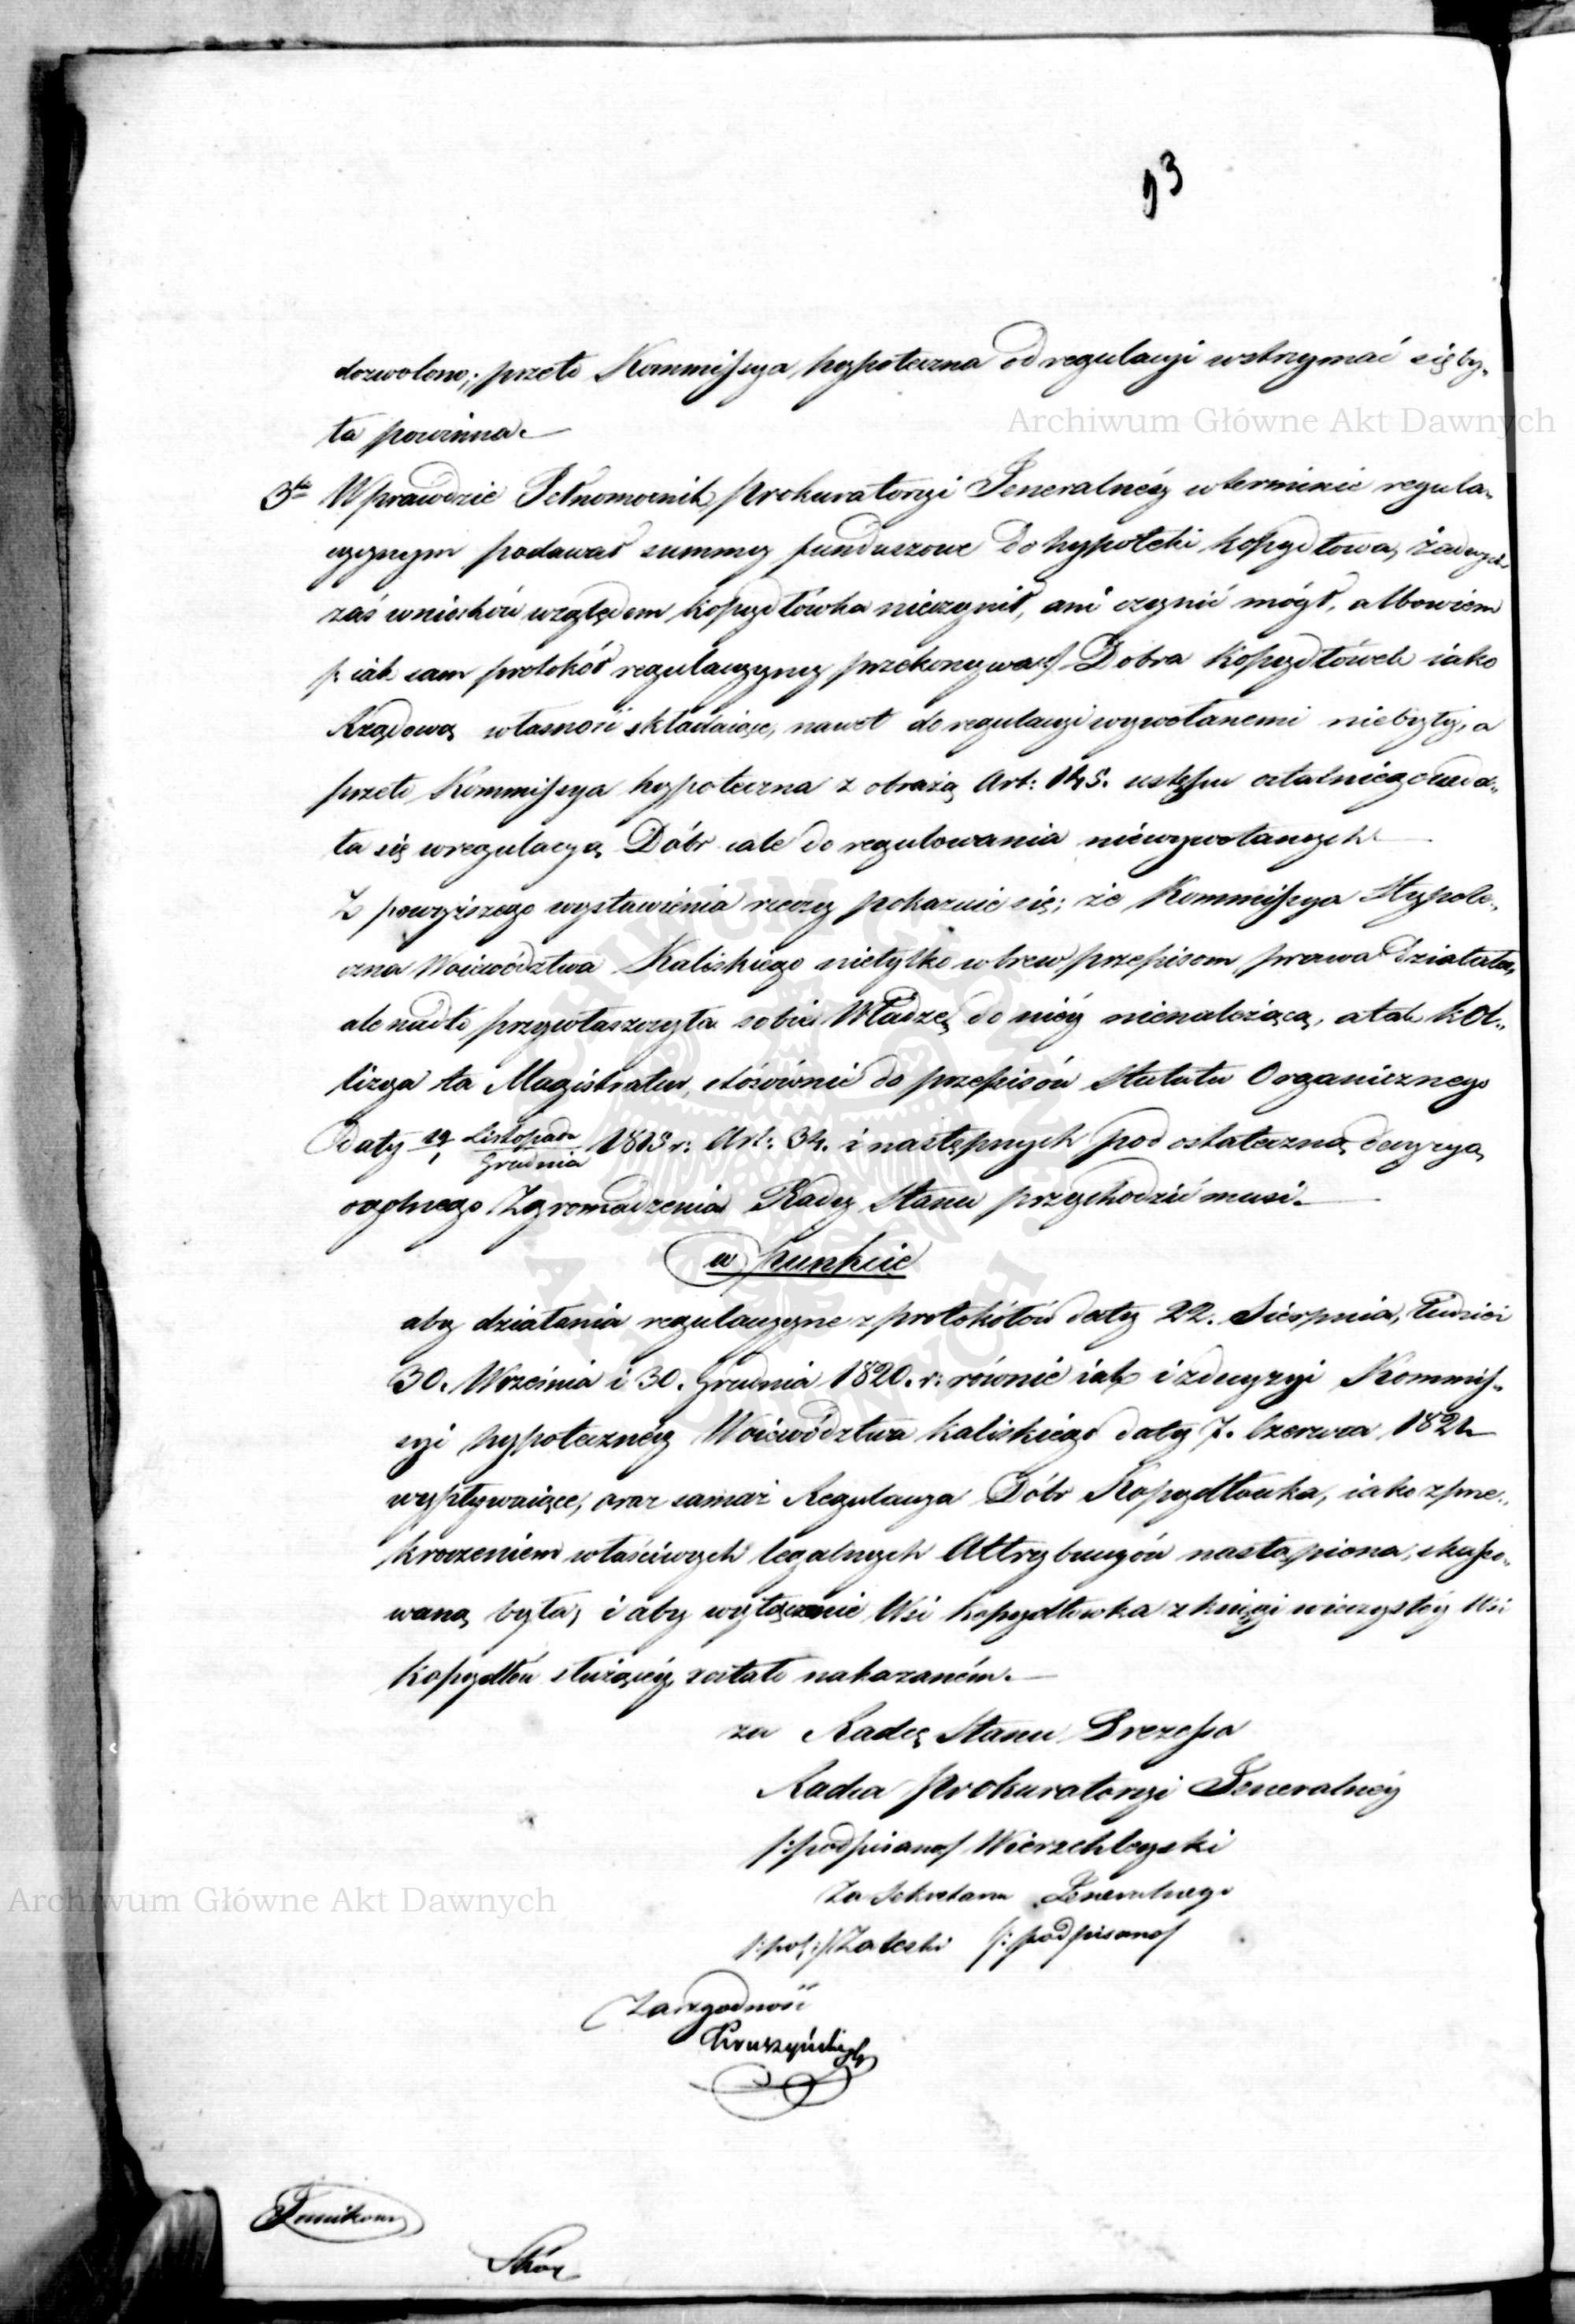 93
dozwolono; przeto Kommissya hypoteczna od regulacyi wstrzymać się by„
ła powinna.
Archiwum Główne Akt Dawnych
3tio Wprawdzie Pełnomocnik Prokuratoryi Jeneralnéy w terminie regula„
cyynym podawał summy funduszowe do hypoteki Kopydłowa, żadnych
zaś wniosków względem Kopydłówka nieczynił, ani czynić mógł, albowiem
/: iak sam protokół regulacyyny przekonywa :/ Dobra Kopydłówek iako
Rządową własność składaiące, nawet do regulacyi wywołanemi niebyły, a
przeto Kommissya hypoteczna z obrazą Art: 145. ustępu ostatniego wda„
ła się w regulacyą Dóbr cale do regulowania niewywołanych.
Z powyższego wystawienia rzeczy pokazuie się; że Kommissya Hypote„
czna Woiewództwa Kaliskiego nietylko wbrew przepisom prawa działała,
ale nadto przywłaszczyła sobie Władzę do niéy nienależącą, a tak kol„
lizya ta Magistratur, stósównie do przepisów Statutu Organicznego
Daty 19/1 Listopada/Grudnia 1815 r: Art: 34. i następnych pod ostateczną decyzyą
ogólnego Zgromadzenia Rady Stanu przychodzić musi.
w punkcie
aby działania regulacyyne z protokółów daty 22. Sierpnia, tudzież
30. Września i 30. Grudnia 1820. r: równie iak i z decyzyi Kommis„
syi hypotecznéy Woiewództwa Kaliskiego daty 7. Czerwca 1821
wypływaiące, oraz samaż Regulacya Dóbr Kopydłowka, iako z prze„
kroczeniem właściwych legalnych Attrybucyów nastąpiona, skasso„
waną była, i aby wyłączenie Wsi Kopydłowka z księgi wieczystéy Wsi
Kopydłów służącéy, zostało nakazaném.
za Radcę Stanu Prezesa
Radca Prokuratoryi Jeneralnéy
/:podpisano/ Wierzchleyski
Za Sekretarza Jeneralnego
Archiwum Główne Akt Dawnych
Zaleski /: podpisano/
Za zgodność